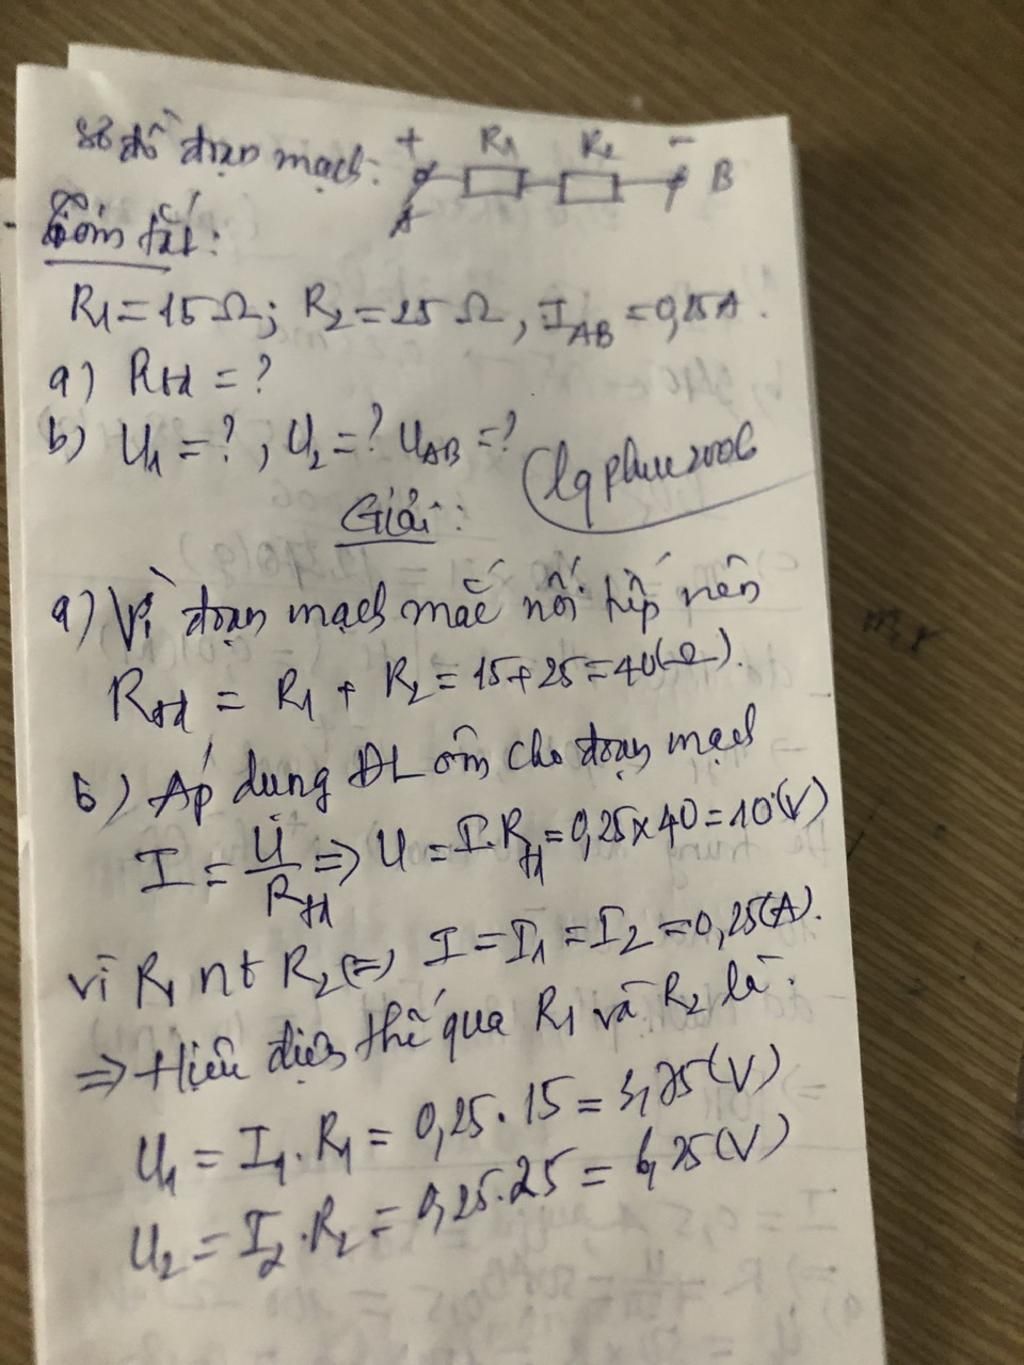 Sơ đồ đoạn mạch: + R1 R2 - A B
Tóm tắt:
R1 = 15Ω; R2 = 25Ω, I_AB = 0,25A.
a) Rtđ = ?
b) U1 = ?, U2 = ? UAB = ?
lqphuc2006
Giải:
a) Vì đoạn mạch mắc nối tiếp nên
Rtđ = R1 + R2 = 15+25 = 40(Ω).
b) Áp dụng ĐL ôm cho đoạn mạch
I = U/Rtđ => U = I.Rtđ = 0,25x40 = 10(V)
vì R1 nt R2 (=) I = I1 = I2 = 0,25(A).
=> Hiệu điện thế qua R1 và R2 là:
U1 = I1.R1 = 0,25.15 = 3,75(V)
U2 = I2.R2 = 0,25.25 = 6,25(V)